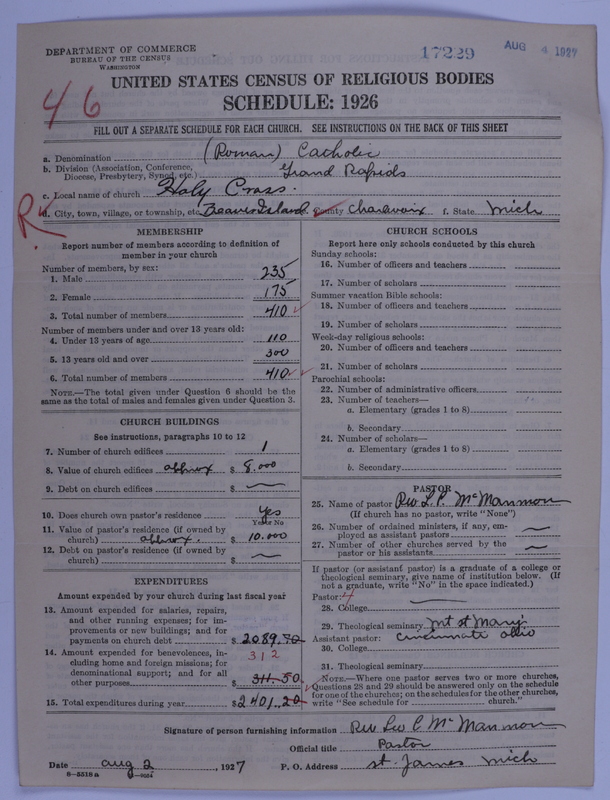 DEPARTMENT OF COMMERCE
BUREAU OF THE CENSUS
WASHINGTON
17229
AUG 4 1927
UNITED STATES CENSUS OF RELIGIOUS BODIES
SCHEDULE: 1926
46
FILL OUT A SEPARATE SCHEDULE FOR EACH CHURCH. SEE INSTRUCTIONS ON THE BACK OF THIS SHEET
a. Denomination (Roman) Catholic
b. Division (Association, Conference, Diocese, Presbytery, Synod, etc.) Grand Rapids
c. Local name of church Holy Cross.
R.
d. City, town, village, or township, etc. Beaver Island. County Charlevoix f. State Mich
MEMBERSHIP
Report number of members according to definition of member in your church
Number of members, by sex:
1. Male 235
2. Female 175
3. Total number of members 410
Number of members under and over 13 years old:
4. Under 13 years of age 110
5. 13 years old and over 300
6. Total number of members 410
NOTE.—The total given under Question 6 should be the same as the total of males and females given under Question 3.
CHURCH BUILDINGS
See instructions, paragraphs 10 to 12
7. Number of church edifices 1
8. Value of church edifices approx $ 8.000
9. Debt on church edifices $ —
10. Does church own pastor's residence? Yes
Yes or No
11. Value of pastor's residence (if owned by church) approx. $ 10.000
12. Debt on pastor's residence (if owned by church) $ —
EXPENDITURES
Amount expended by your church during last fiscal year
13. Amount expended for salaries, repairs, and other running expenses; for improvements or new buildings; and for payments on church debt $ 2089.70
14. Amount expended for benevolences, including home and foreign missions; for denominational support; and for all other purposes 312 $ 311.50
15. Total expenditures during year $ 2401.20
CHURCH SCHOOLS
Report here only schools conducted by this church
Sunday schools:
16. Number of officers and teachers
17. Number of scholars
Summer vacation Bible schools:
18. Number of officers and teachers
19. Number of scholars
Week-day religious schools:
20. Number of officers and teachers
21. Number of scholars
Parochial schools:
22. Number of administrative officers
23. Number of teachers—
a. Elementary (grades 1 to 8)
b. Secondary
24. Number of scholars—
a. Elementary (grades 1 to 8)
b. Secondary
PASTOR
25. Name of pastor Rev L. P. McManmon
(If church has no pastor, write "None")
26. Number of ordained ministers, if any, employed as assistant pastors —
27. Number of other churches served by the pastor or his assistants —
If pastor (or assistant pastor) is a graduate of a college or theological seminary, give name of institution below. (If not a graduate, write "No" in the space indicated.)
Pastor: 4
28. College —
29. Theological seminary Mt St Marys
Assistant pastor: Cincinnati Ohio
30. College
31. Theological seminary
NOTE.—Where one pastor serves two or more churches, Questions 28 and 29 should be answered only on the schedule for one of the churches; on the schedules for the other churches, write "See schedule for church."
Signature of person furnishing information Rev Leo C McManmon
Official title Pastor
Date Aug 2, 1927 P. O. Address St. James Mich
8—5518 a